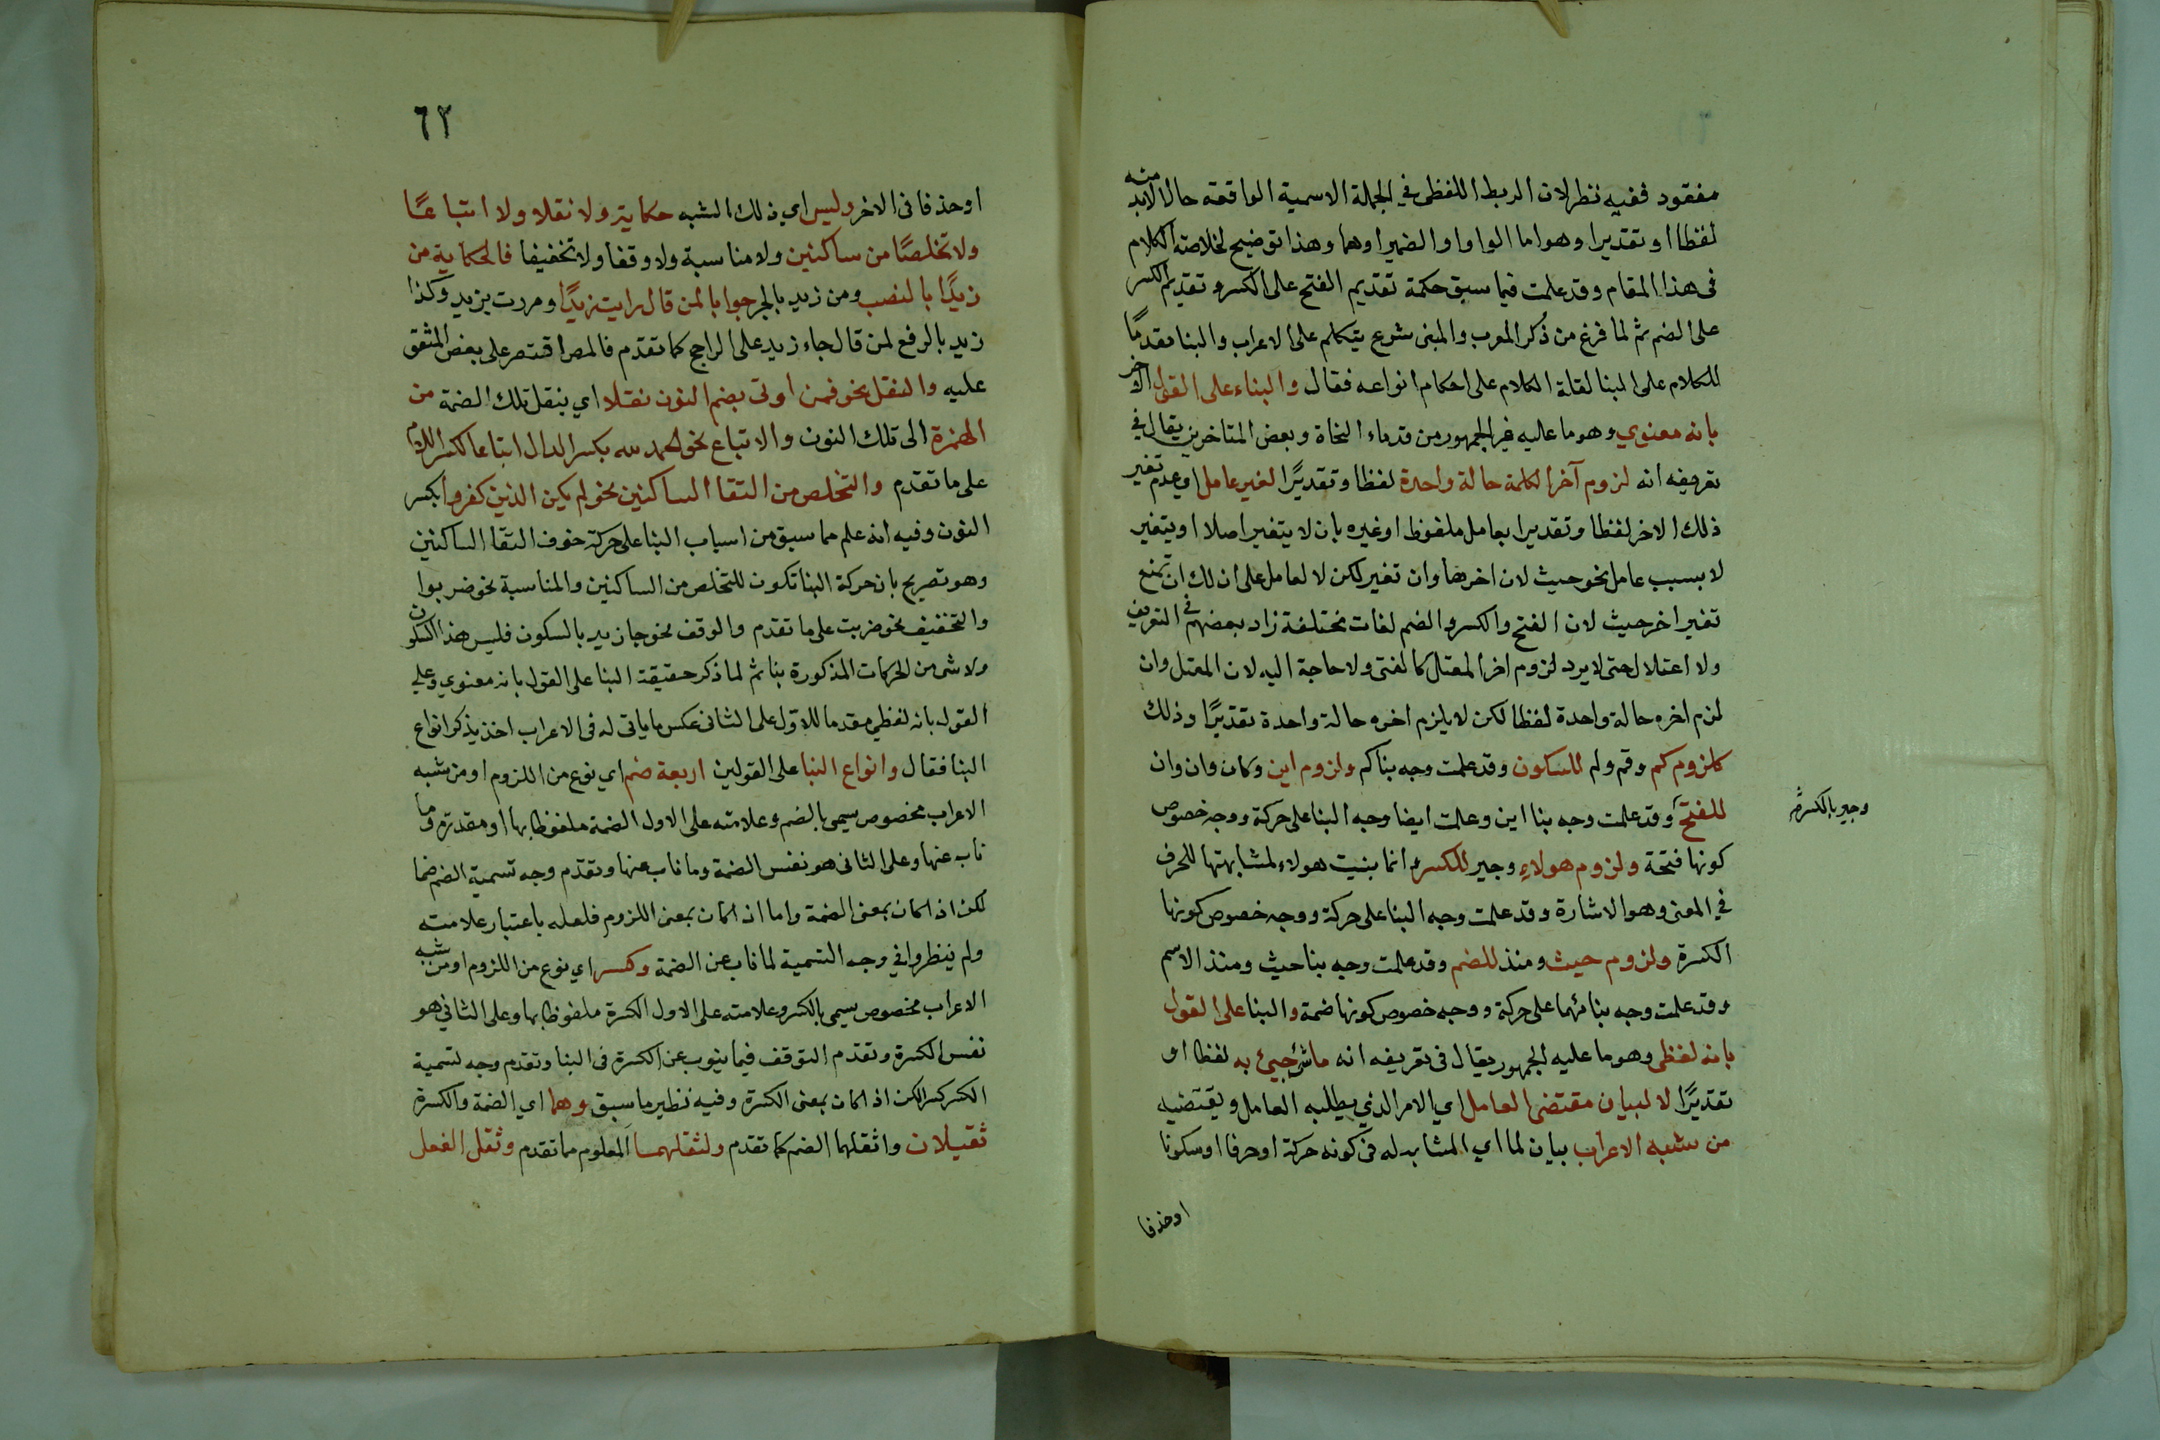 مفقود ففيه نظر لان الربط اللفظى في الجملة الاسمية الواقعة حالا لابد منه
لفظا او تقديرا وهو اما الواو او الضمير او هما وهذا توضيح لخلاصة الكلام
فى هذا المقام وقد علمت فيما سبق حكمة تقديم الفتح على الكسر وتقديم الكسر
على الضم ثم لما فرغ من ذكر المعرب والمبنى شرع يتكلم على الاعراب والبنا مقدمًا
للكلام على البنا لقلة الكلام على احكام انواعه فقال والبناء على القول الاخر
بانه معنوي وهو ما عليه غير الجمهور من قدماء النحاة وبعض المتاخرين يقال في
تعريفه انه لزوم آخر الكلمة حالة واحدة لفظا وتقديرًا لغير عامل او عدم تغير
ذلك الاخر لفظا وتقديرا بعامل ملفوظ او غيره بان لا يتغير اصلا او يتغير
لا بسبب عامل نحو حيث لان اخرها وان تغير لكن لا لعامل على ان لك ان تمنع
تغير اخر حيث لان الفتح والكسر والضم لغات مختلفة زاد بعضهم في التعريف
ولا اعتلال حتى لا يرد لزوم اخر المعتل كالفتى ولا حاجة اليه لان المعتل وان
لزم اخره حالة واحدة لفظا لكن لا يلزم اخره حالة واحدة تقديرًا وذلك
كلزوم كم وقم ولم للسكون وقد علمت وجه بنا كم ولزوم اين وكان وان وان
للفتح وقد علمت وجه بنا اين وعلمت ايضا وجه البنا على حركة ووجه خصوص
وجير بالكسر
كونها فتحة ولزوم هولاءِ وجير للكسر وانما بنيت هولاء لمشابهتها للحرف
في المعنى وهو الاشارة وقد علمت وجه البنا على حركة ووجه خصوص كونها
الكسرة ولزوم حيث ومنذ للضم وقد علمت وجه بنا حيث ومنذ الاسم
وقد علمت وجه بنائهما على حركة ووجه خصوص كونها ضمة والبنا على القول
بانه لفظى وهو ما عليه الجمهور يقال فى تعريفه انه ما شئ جيئ به لفظا او
تقديرًا لا لبيان مقتضى العامل اي الامر الذي يطلبه العامل ويقتضيه
من شبه الاعراب بيان لما اي المشابه له فى كونه حركة او حرفا او سكونا
او حذفا
٦٢
او حذفا فى الاخر وليس اي ذلك الشبه حكاية ولا نقلا ولا اتباعًا
ولا تخلصًا من ساكنين ولا مناسبة ولا وقفا ولا تخفيفا فالحكاية من
زيدًا بالنصب ومن زيد بالجر جوابا لمن قال رايت زيدًا ومررت بزيد وكذا
زيد بالرفع لمن قال جاء زيد على الراجح كما تقدم فالمصر اقتصر على بعض المتفق
عليه والنقل نحو فمن اوتى بضم النون نقلا اي بنقل تلك الضمة من
الهمزة الى تلك النون والاتباع نحو الحمد لله بكسر الدال اتباعا لكسر اللام
على ما تقدم والتخلص من التقا الساكنين نحو لم يكن الذين كفروا بكسر
النون وفيه انه علم مما سبق من اسباب البنا على حركة خوف التقا الساكنين
وهو تصريح بان حركة البنا تكون للتخلص من الساكنين والمناسبة نحو ضربوا
والتخفيف نحو ضربت على ما تقدم والوقف نحو جا زيد بالسكون فليس هذا السكون
ولا شى من الحركات المذكورة بنا ثم لما ذكر حقيقة البنا على القول بانه معنوي وعلى
القول بانه لفظي مقدما للاول على الثانى عكس ما ياتى له فى الاعراب اخذ يذكر انواع
البنا فقال وانواع البنا على القولين اربعة ضم اي نوع من اللزوم او من شبه
الاعراب مخصوص يسمى بالضم وعلامته على الاول الضمة ملفوظا بها او مقدرة وما
ناب عنها وعلى الثانى هو نفس الضمة وما ناب عنها وتقدم وجه تسمية الضم ضما
لكن اذا كان بمعنى الضمة واما اذا كان بمعنى اللزوم فلعله باعتبار علامته
ولم ينظروا في وجه التسمية لما ناب عن الضمة وكسر اي نوع من اللزوم او من شبه
الاعراب مخصوص يسمى بالكسر وعلامته على الاول الكسرة ملفوظا بها وعلى الثاني هو
نفس الكسرة وتقدم التوقف فيما ينوب عن الكسرة فى البنا وتقدم وجه تسمية
الكسر كسرا لكن اذا كان بمعنى الكسرة وفيه نظير ما سبق وهما اي الضمة والكسرة
ثقيلان واثقلهما الضم كما تقدم ولثقلهما المعلوم مما تقدم وثقل الفعل